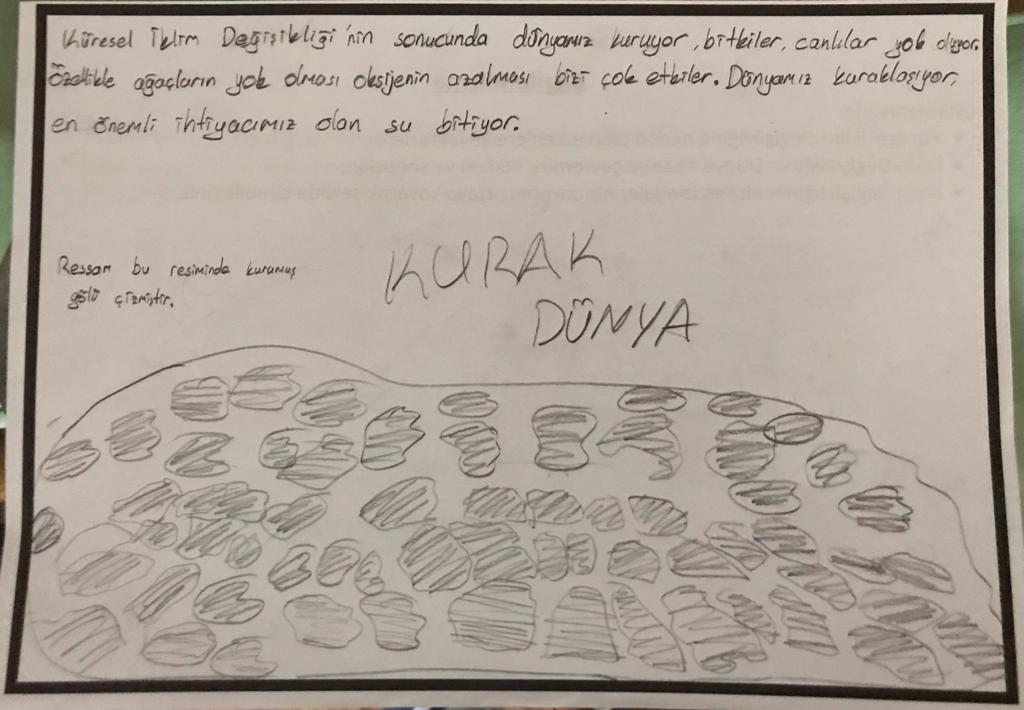 Küresel İklim Değişikliği'nin sonucunda dünyamız kuruyor, bitkiler, canlılar yok oluyor.
Özellikle ağaçların yok olması oksijenin azalması bizi çok etkiler. Dünyamız kuraklaşıyor,
en önemli ihtiyacımız olan su bitiyor.
Ressam bu resiminde kurumuş
gölü çizmiştir.
KURAK
DÜNYA